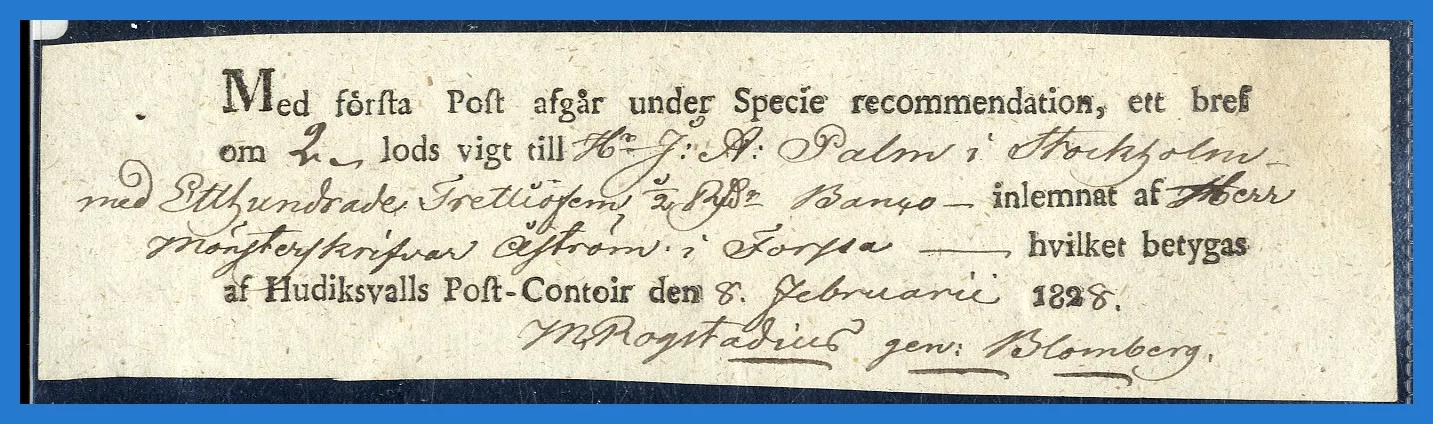 Med förſta Poſt afgår under Specie recommendation, ett bref
om 2 lods vigt till Hr J: A: Palm i Stockholm
med Etthundrade Trettiofem 1/2 Rdr Banco — inlemnat af Herr
Mönsterskrifvar Åström i Forssa — hvilket betygas
af Hudiksvalls Poſt-Contoir den 8. Februarii 1828.
M Rogstadius gen: Blomberg.